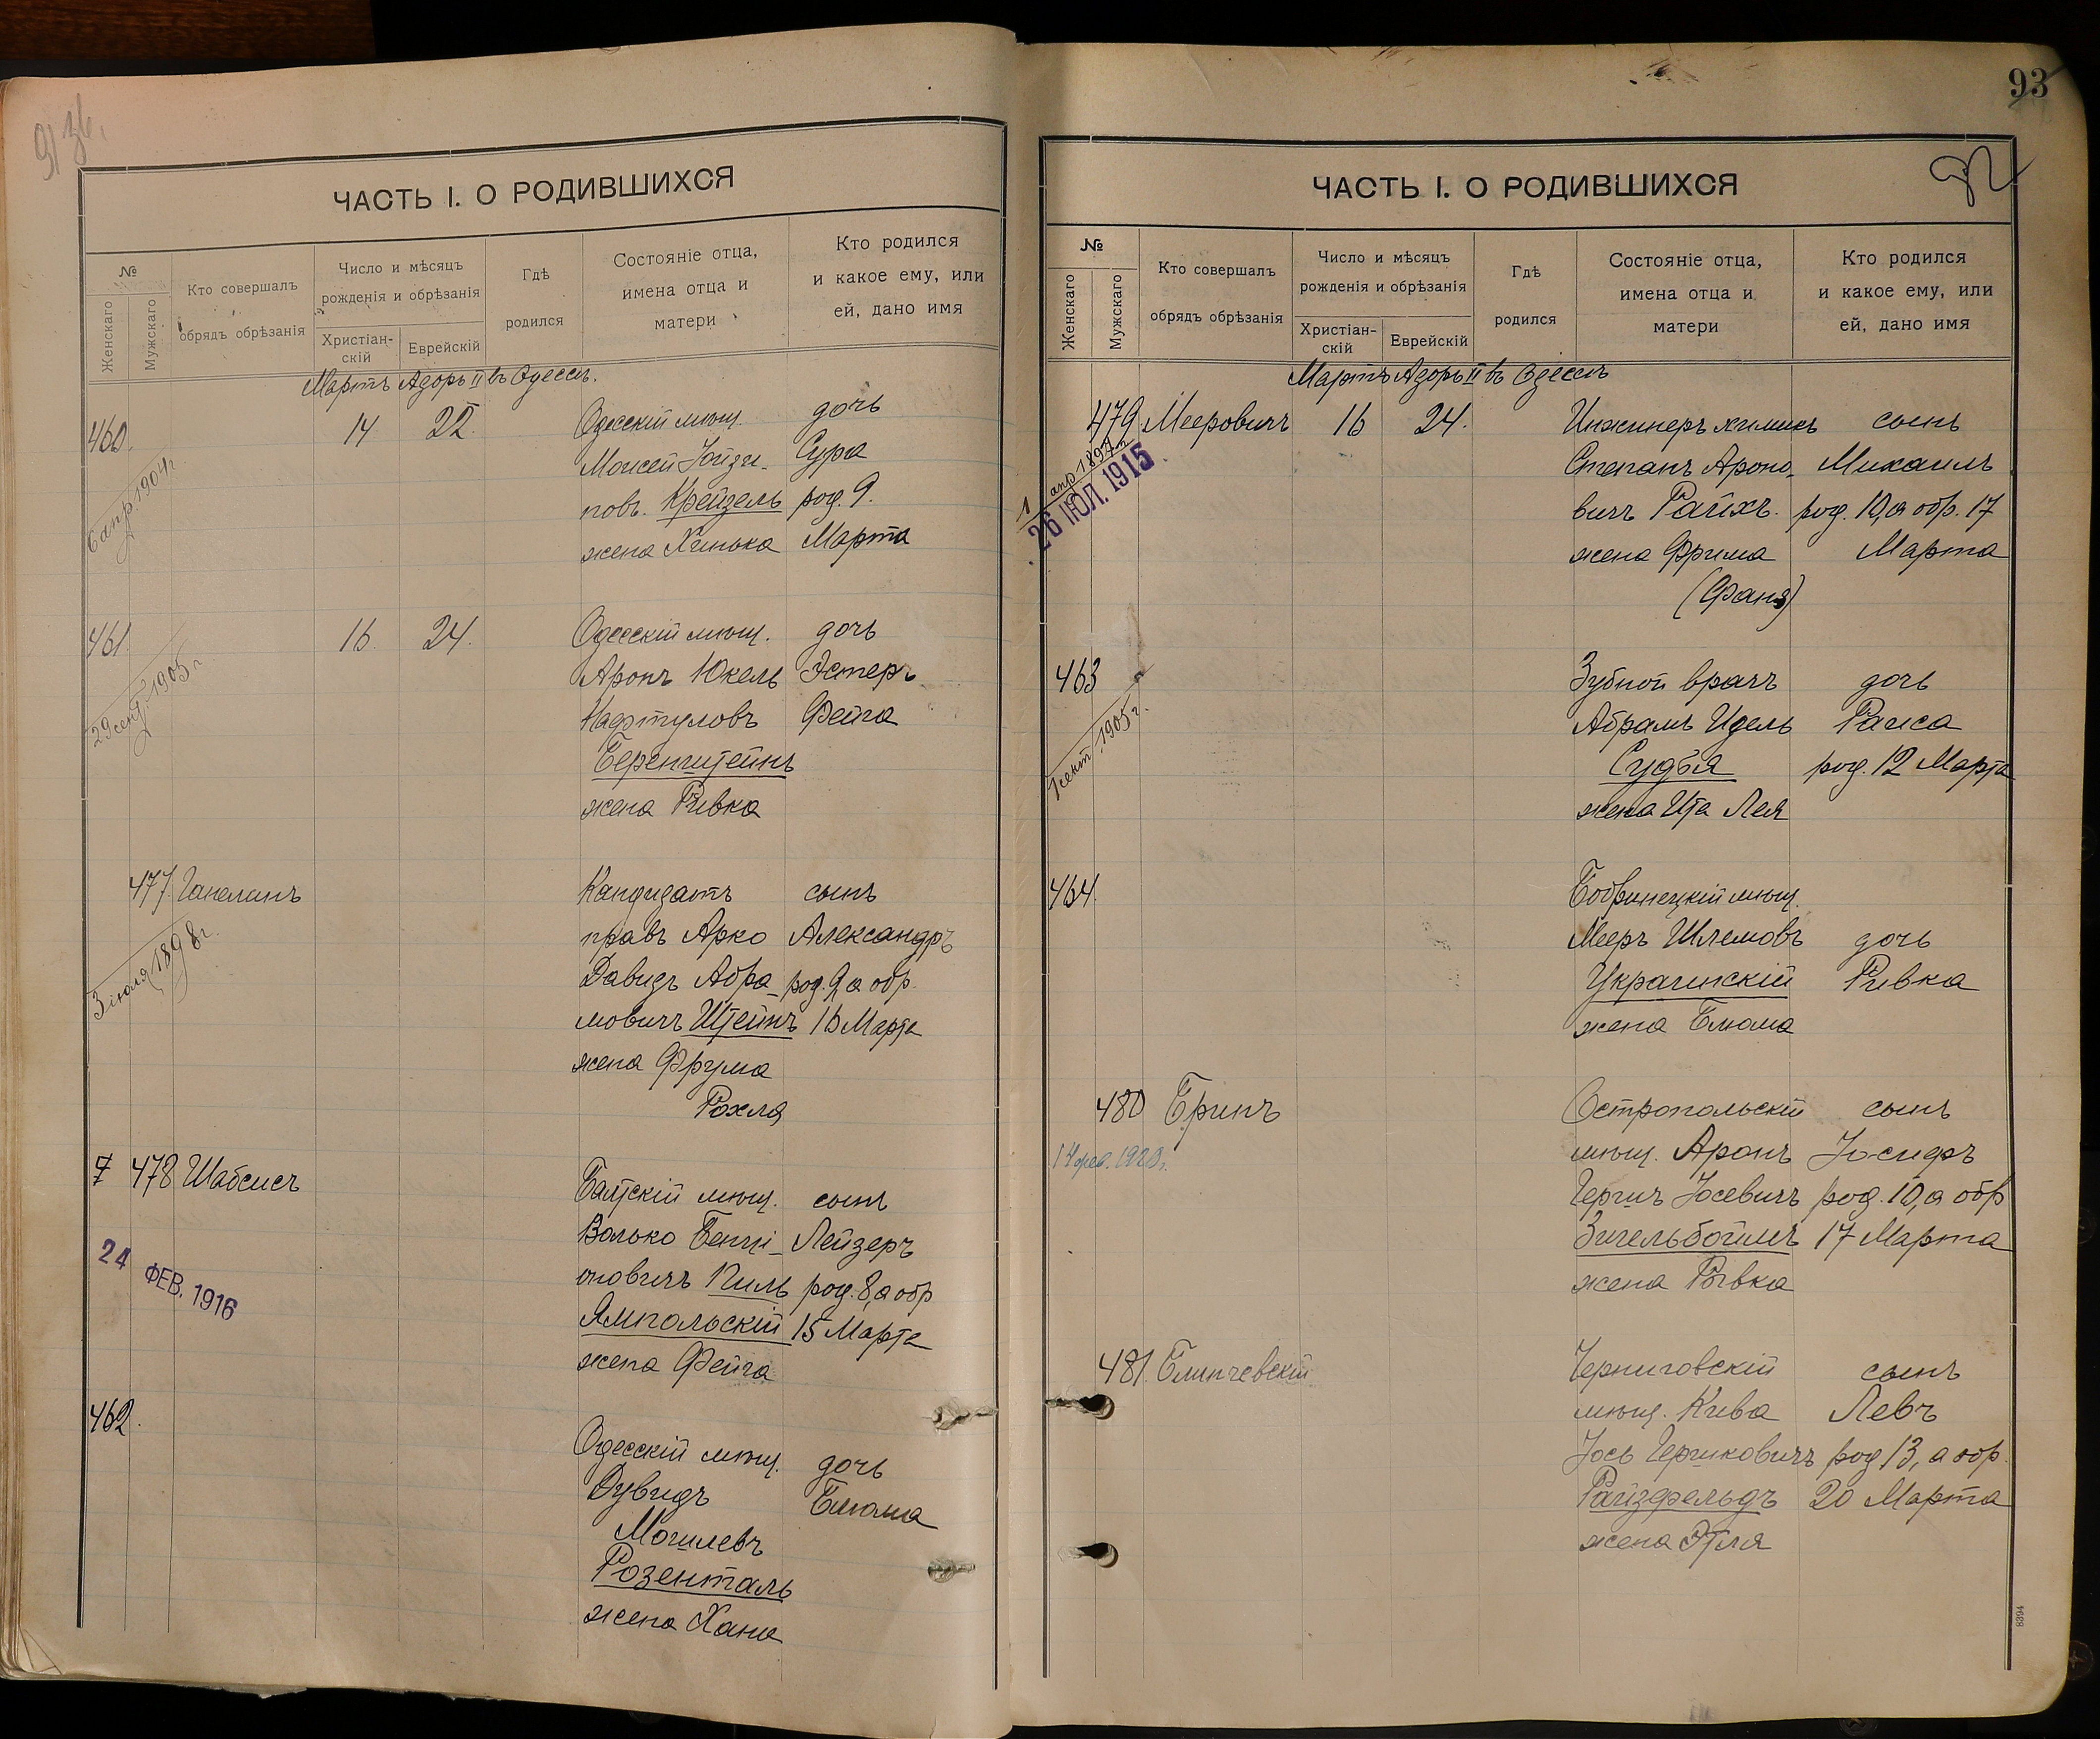 ЧАСТЬ I. О РОДИВШИХСЯ
№
Женскаго
Мужскаго
Кто совершалъ
обрядъ обрѣзанія
Число и мѣсяцъ
рожденія и обрѣзанія
Христіан-
скій
Еврейскій
Гдѣ
родился
Состояніе отца,
имена отца и
матери
Кто родился
и какое ему, или
ей, дано имя
Мартъ Адоръ II въ Одессѣ.
460. 14 22. Одесскій мѣщ. дочь
6 апр. 1904 г.
Моисей Сура
повъ. Крейзель род. 9.
жена Хинька Марта
461. 16. 24. Одесскій мѣщ. дочь
29 сент. 1905 г.
Аронъ Юкель Эстеръ
Нафтуловъ Фейга
Беренштейнъ
жена Ривка
477. Ганелинъ Кандидатъ сынъ
3 іюля 1898 г.
правъ Арко Александръ
Давидъ Абра- род. 9 а обр.
мовичъ Штейнъ 16 Марта
жена Фрума
Рохля
7 478 Шабсисъ Балтскій мѣщ. сынъ
24 ФЕВ. 1916
Волько Бенці- Лейзеръ
оновичъ Киль род. 8, а обр
Ямпольскій 15 Марта
жена Фейга
462. Одесскій мѣщ. дочь
Дувидъ Блюма
Могилевъ
Розенталь
жена Хана
93
92
ЧАСТЬ I. О РОДИВШИХСЯ
№
Женскаго
Мужскаго
Кто совершалъ
обрядъ обрѣзанія
Число и мѣсяцъ
рожденія и обрѣзанія
Христіан-
скій
Еврейскій
Гдѣ
родился
Состояніе отца,
имена отца и
матери
Кто родился
и какое ему, или
ей, дано имя
Мартъ Адоръ II въ Одессѣ
479 Мееровичъ 16 24. Инженеръ химикъ сынъ
1 апр 1897 г.
26 ІЮЛ. 1915
Степанъ Ароно- Михаилъ
вичъ Райхъ. род. 10, а обр. 17
жена Фрима Марта
(Фаня)
463 Зубной врачъ дочь
1 сент. 1905 г.
Абрамъ Идель Раиса
Судья род. 12 Марта
жена Ита Лея
464. Бобринецкій мѣщ.
Мееръ Шлемовъ дочь
Украинскій Ривка
жена Блюма
480 Бринъ Остропольскій сынъ
14 фев. 1923 г.
мѣщ. Аронъ Іосифъ
Гершъ Іосевичъ род. 10, а обр
Зигельбоймъ 17 Марта
жена Рывка
481 Блинчевскій Черниговскій сынъ
мѣщ. Кива Левъ
Іось Гершковичъ род 13, а обр.
Райзфельдъ 20 Марта
жена Этля
8394